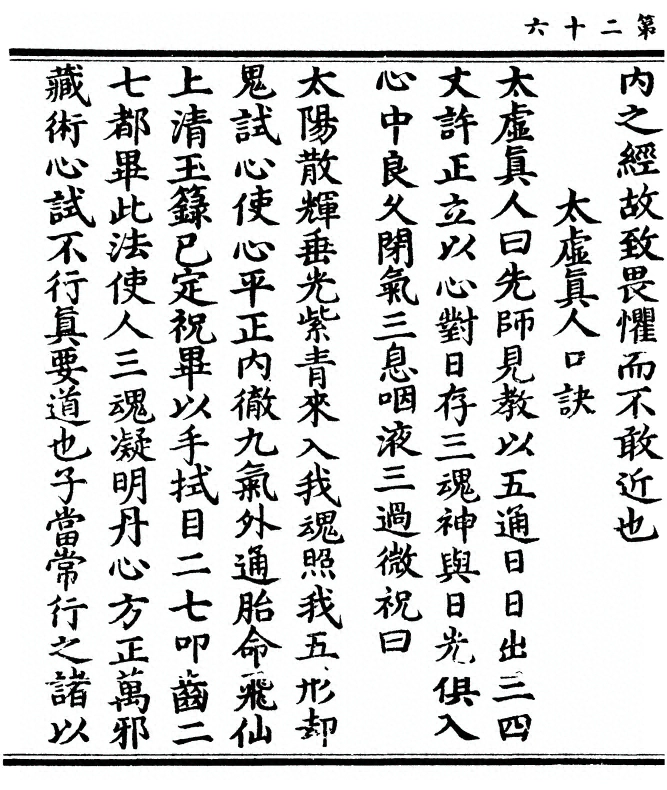 第二十六
内之經故致畏懼而不敢近也
太虛眞人口訣
太虛眞人曰先師見教以五通日日出三四
丈許正立以心對日存三魂神與日光俱入
心中良久閉氣三息咽液三過微祝曰
太陽散輝垂光紫青來入我魂照我五形却
鬼試心使心平正内徹九氣外通胎命飛仙
上清玉籙已定祝畢以手拭目二七叩齒二
七都畢此法使人三魂凝明丹心方正萬邪
藏術心試不行眞要道也子當常行之諸以